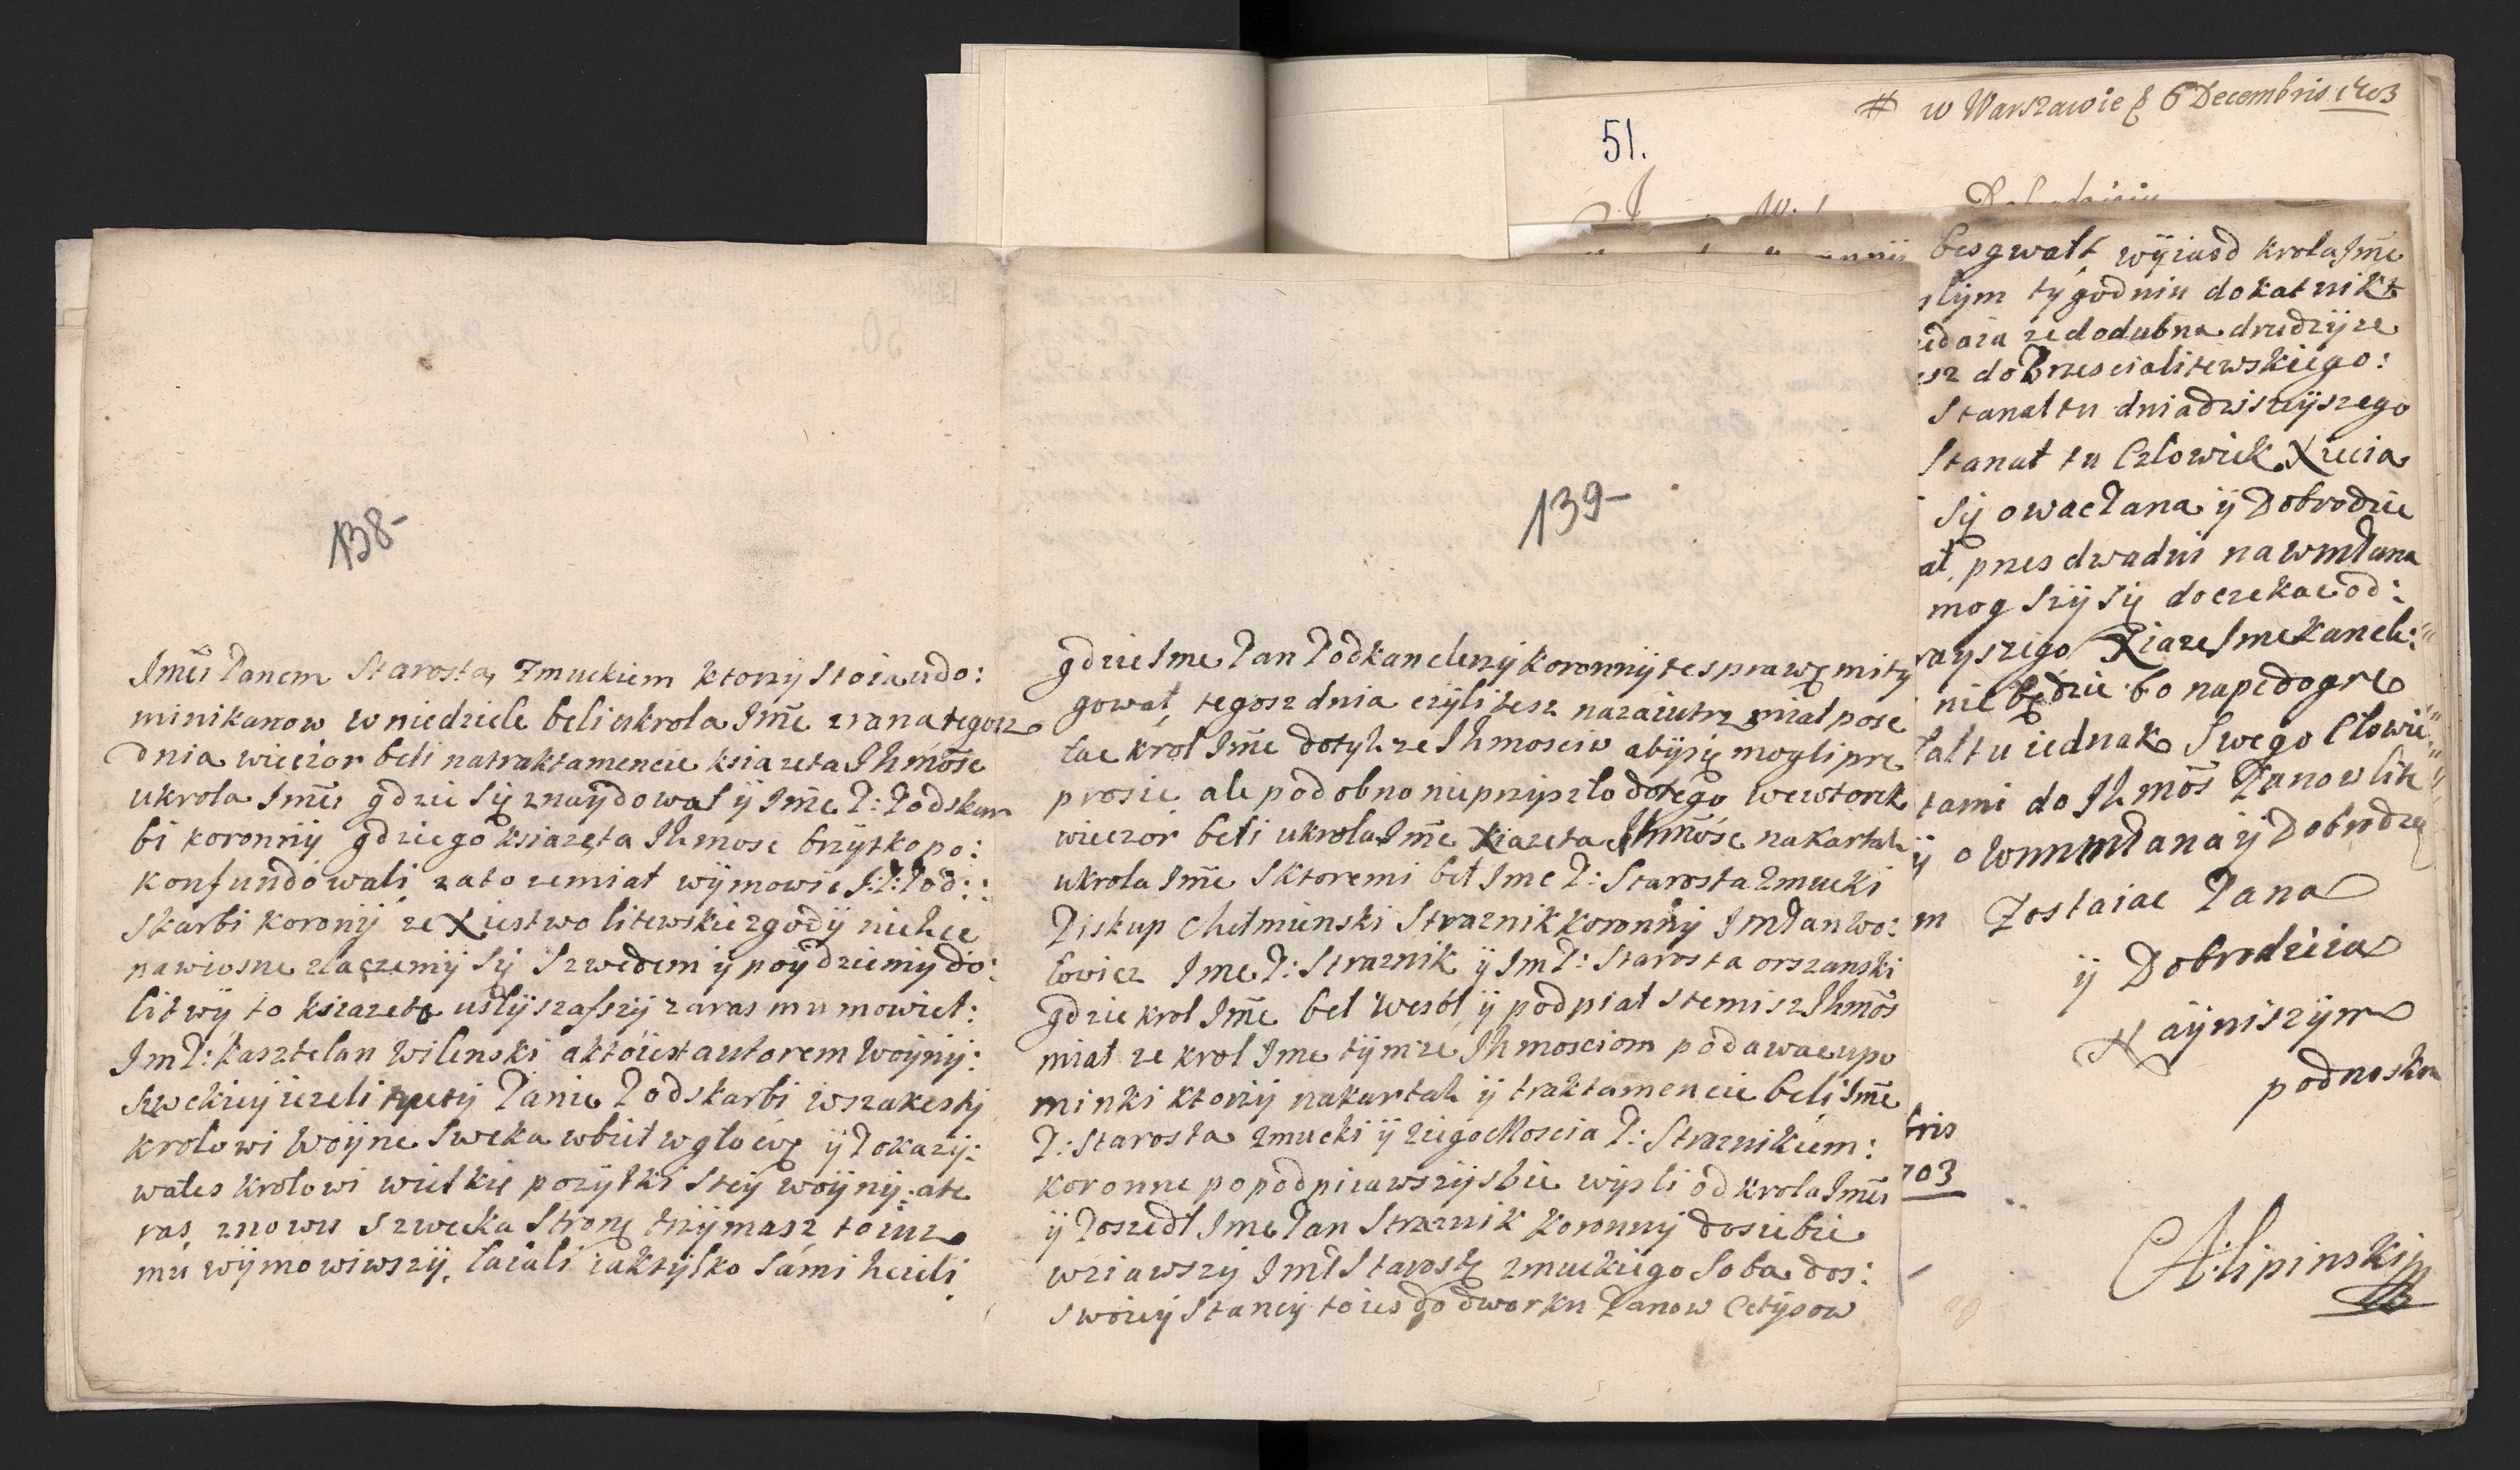 138-
Jmẽi Panem Starosta, zmuckiem ktorzÿ stoia udo:
minikanow w niedziele beli ukrola Jmẽ zrana tegosz
dnia wieczor beli natraktamencie ksiazeta Ihmośc
ukrola Jmẽi gdzie Się znaÿdował ÿ Jmẽ P: Podskar
bi koronnÿ gdziego ksiazęta Ihmosc brzÿtko po:
konfundowali zato zemiał wÿmowic J:P: Pod:
skarbi koronÿ ze Xiestwo litewskie zgodÿ niehce
nawiosne złączemÿ Sÿ Szwedem ÿ poÿdziemÿ do:
litwÿ to ksiazeta uslÿszafszÿ zaras mu mowieł:
Jm P: kasztelan Wilenski a ktoiest autorem WoÿnÿJ:
Szweckieÿ iezeli nie tÿ Panie Podskarbi wszakes tÿ
krolowi Woÿne Swecka wbieł wgłowę ÿ Pokazÿ:
wałes krolowi wielkie pozÿtki steÿ woÿnÿ: ate
ras, znowu szwecka stronę trzÿmasz to iusz
mu wÿmowiwszÿ, łaiali iaktÿlko sami hcieli
139-
gdzie Jme Pan Podkanclerzÿ koronnÿ te sprawę mitÿ
gował, tegosz dnia czÿlitesz nazaiutrz miał pose
łac krol Jmẽ dotÿh ze Ihmosciw abÿsię mogli prze
prosic ale podobno nieprzÿszło dotego wewtorek
wieczor beli ukrola Jmẽ Xiazeta Ihmośc nakartah
ukrola Jmẽ Sktoremi beł Jme P: Starosta Zmucki
Piskup Chełminski Straznik koronnÿ Jm Pan Wo:
łowicz Jme P: Straznik ÿ Jm P: Starosta orszanski
gdzie krol Jmẽ beł Wesoł ÿ podpiał stemisz Ihmõs
miał ze krol Jme tÿm ze Ihmosciom podawac upo
minki ktorzÿ nakartah ÿ traktamencie beli Jmẽ
P: Starosta zmucki ÿ ziego Moscia P: Straznikiem:
koronne popodpiiawszÿ sbie wÿsli od krola Jmẽi
ÿ Poszedł Jme Pan Straznik koronnÿ dosiebie
wziawszÿ Jm P Starostę zmuckiego Soba dos:
swoieÿ Stancÿ toies do dworku Panow Cetÿsow
# w Warszawie 6 Decembris 1703
51.
besgwałt wÿiasd krola Jmẽ
słÿm tÿgodniu dokat nikt
edaia zedodubna drudzÿ ze
esz doBrzescia litewskiego:
Stanal tu dnia dzisieÿszego
Stanał tu Człowiek Xiecia
Sÿ owac Pana ÿ Dobrodzie
ał, przes dwadni na wm Pana
mog Szÿ Sÿ doczekac od:
raÿszego Xiaze Jme kancle:
nie będzie bo napedogre
łał tu iednak Swego Człowie
tami do Ih mõs Panow lite
ÿ o Wmm Pana ÿ Dobrodzie
m Zostaiac Pana
ÿ Dobrodzieia
Naÿniszÿm
podnoskem
bris
703
A lipinski